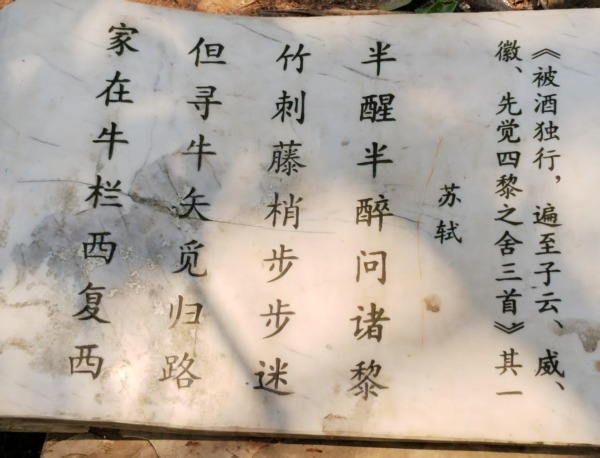 《被酒独行，遍至子云、威、
徽、先觉四黎之舍三首》其一
苏轼
半醒半醉问诸黎
竹刺藤梢步步迷
但寻牛矢觅归路
家在牛栏西复西